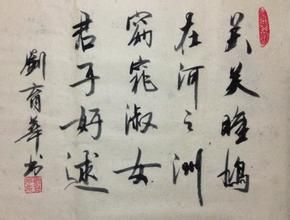 关关雎鸠
在河之洲
窈窕淑女
君子好逑
刘育华书